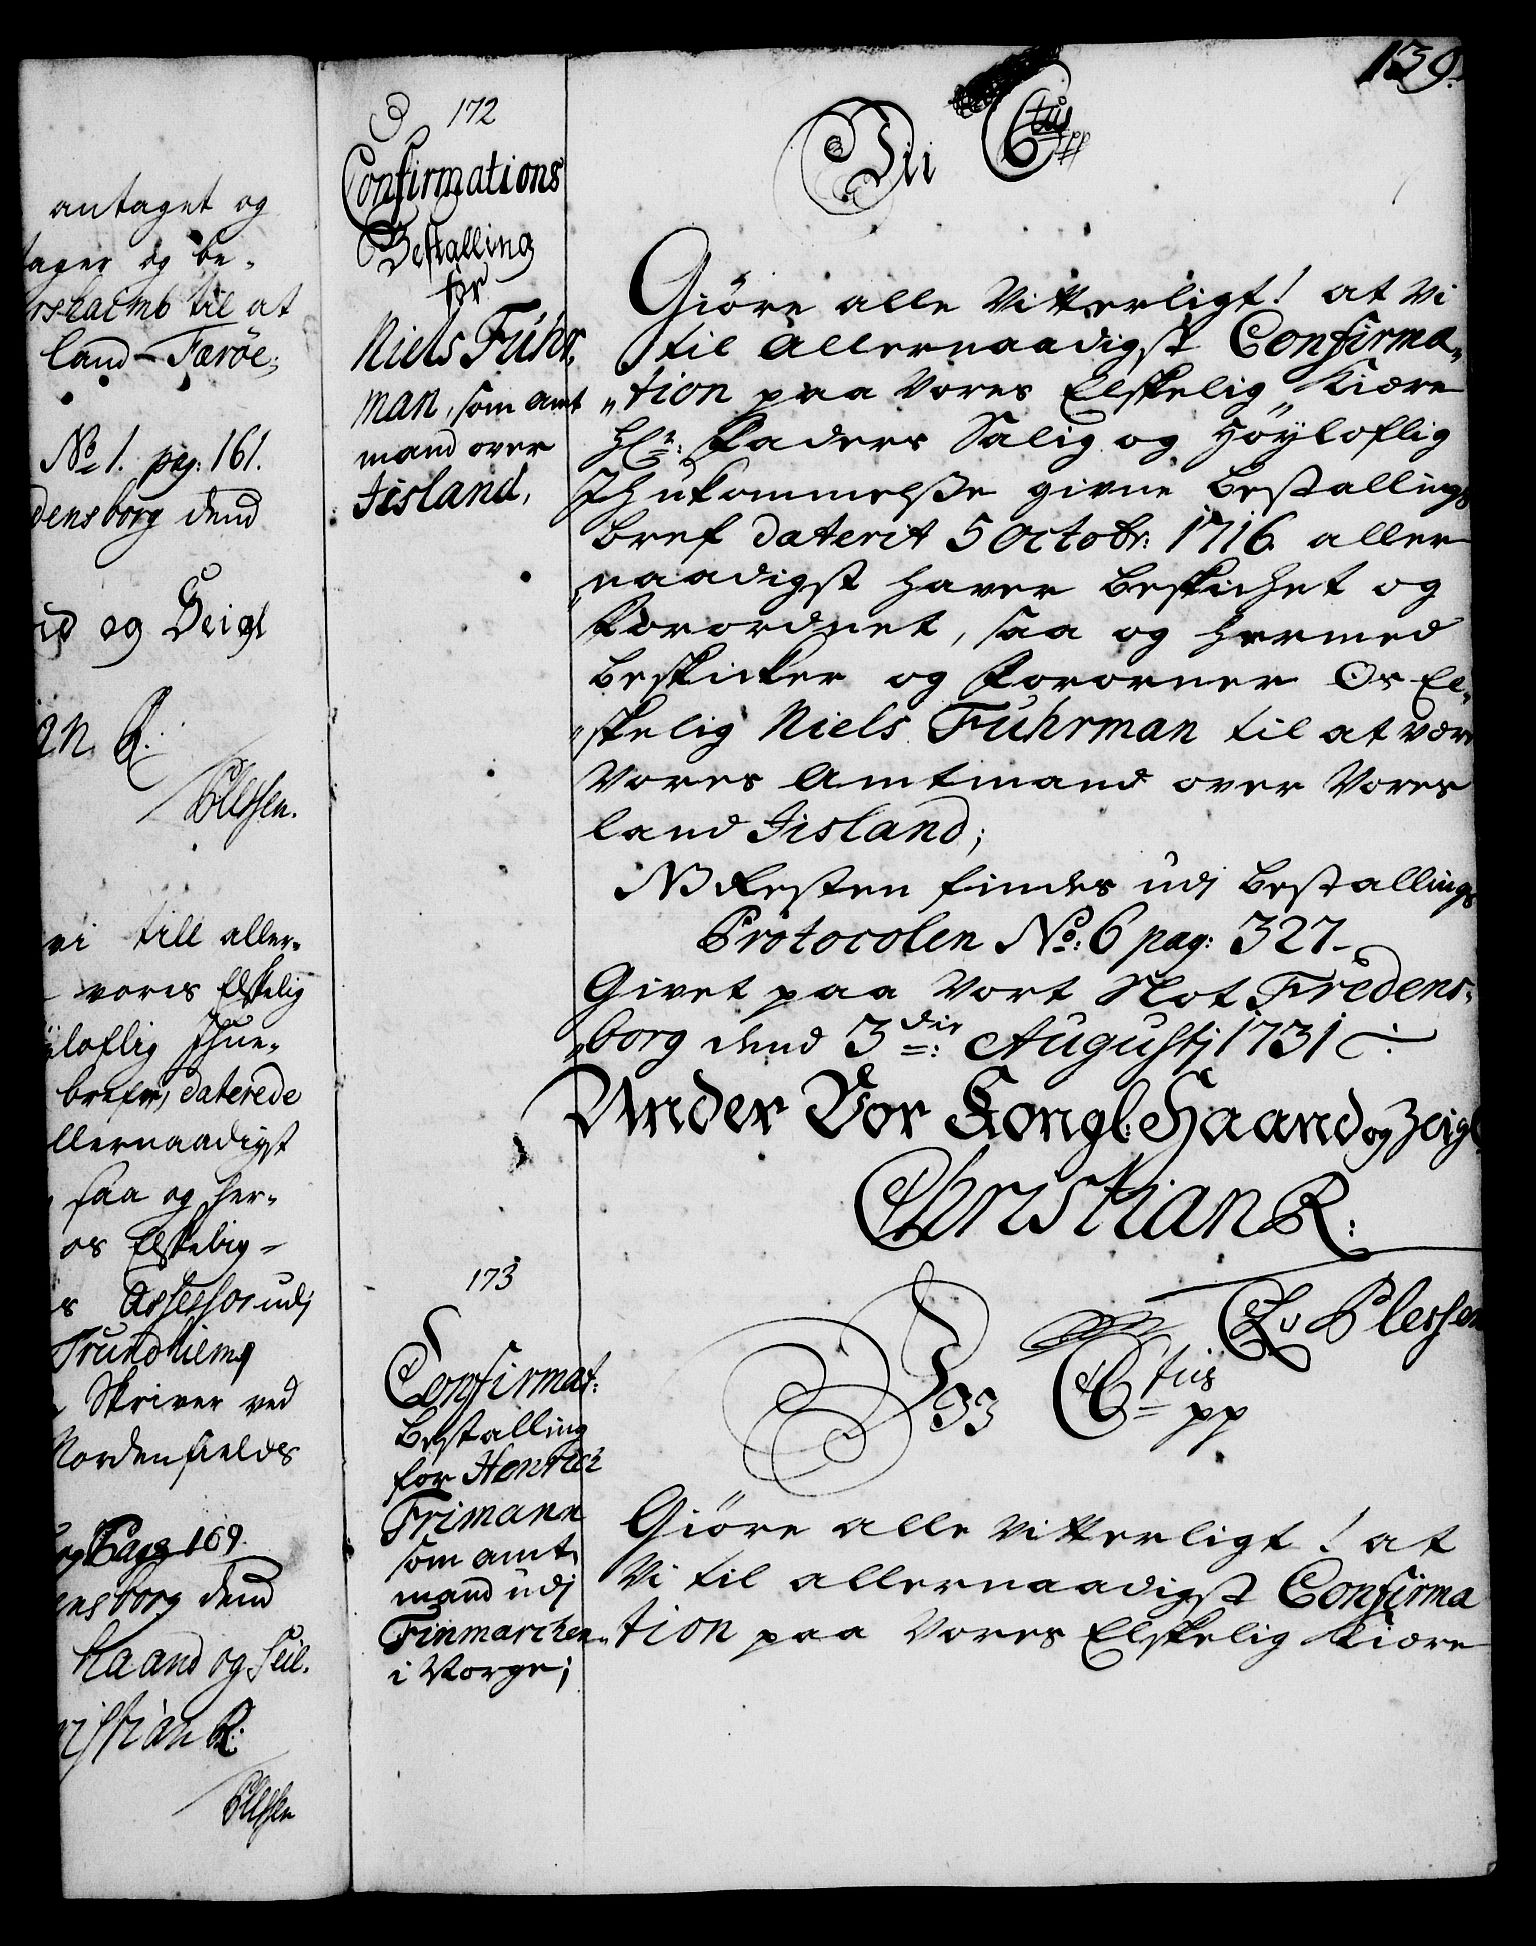 antaget og
tager og be-
til at
land - Færöe;
No 1. pag: 161.
densborg dend
og Seigl
an R.
Plessen.
vi till aller-
vores Elskelig
yloflig Ihue-
brefve, daterede
llernaadigst
saa og her-
os Elskelig -
Assessor udj
Trundhiems
Skriver ved
Nordenfields
Page 169.
ensborg dend
Haand og Seil.
ristian R:
Plessen
139.
172
Confirmations
Bestalling
for
Niels Fuhr,
man, som amt
mand over
Jisland,
Vii Ctus pp
Giöre alle Vitterligt! at Vi
til Allernaadigst Confirma„
„tion paa Vores Elskelig Kiære
Hr: Faders Salig og Höyloflig
Ihukommelße givne Bestallings
Bref daterit 5 Octobr: 1716. aller
„naadigst haver Beskichet og
Forordnet, saa og hermed
Beskicker og Forordner Os El„
„skelig Niels Fuhrman til at være
Vores Amtmand over Vores
land Jisland;
NB Resten findes udj Bestallings
Protocolen No: 6 pag: 327-
Givet paa Vort Slot Fredens„
„borg dend 3die: Augustj 1731
Under Vor Kongl: Haand og Zeigl
Christian R:
C A v Plessen
173
Confirmat:
Bestalling
for Henrich
Frimann
som amt,
mand udj
Finmarchen
i Norge;
Vii Ctus pp
Giöre alle Vitterligt! at
Vi til allernaadigst Confirma
„tion paa Vores Elskelig Kiære